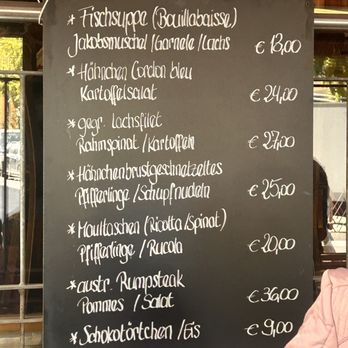 * Fischsuppe (Bouillabaisse)
Jakobsmuschel/Garnele/Lachs € 18,00
* Hähnchen Cordon bleu
Kartoffelsalat € 24,00
* gegr. Lachsfilet
Rahmspinat/Kartoffeln € 27,00
* Hähnchenbrustgeschnetzeltes
Pfifferlinge/Schupfnudeln € 25,00
* Maultaschen (Ricotta/Spinat)
Pfifferlinge/Rucola € 20,00
* austr. Rumpsteak
Pommes/Salat € 36,00
* Schokotörtchen/Eis € 9,00